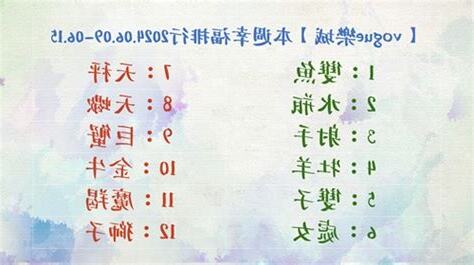 【vogue樂城】本週幸福排行2024.06.09-06.15
1：雙魚
2：水瓶
3：射手
4：牡羊
5：雙子
6：處女
7：天秤
8：天蠍
9：巨蟹
10：金牛
11：魔羯
12：獅子